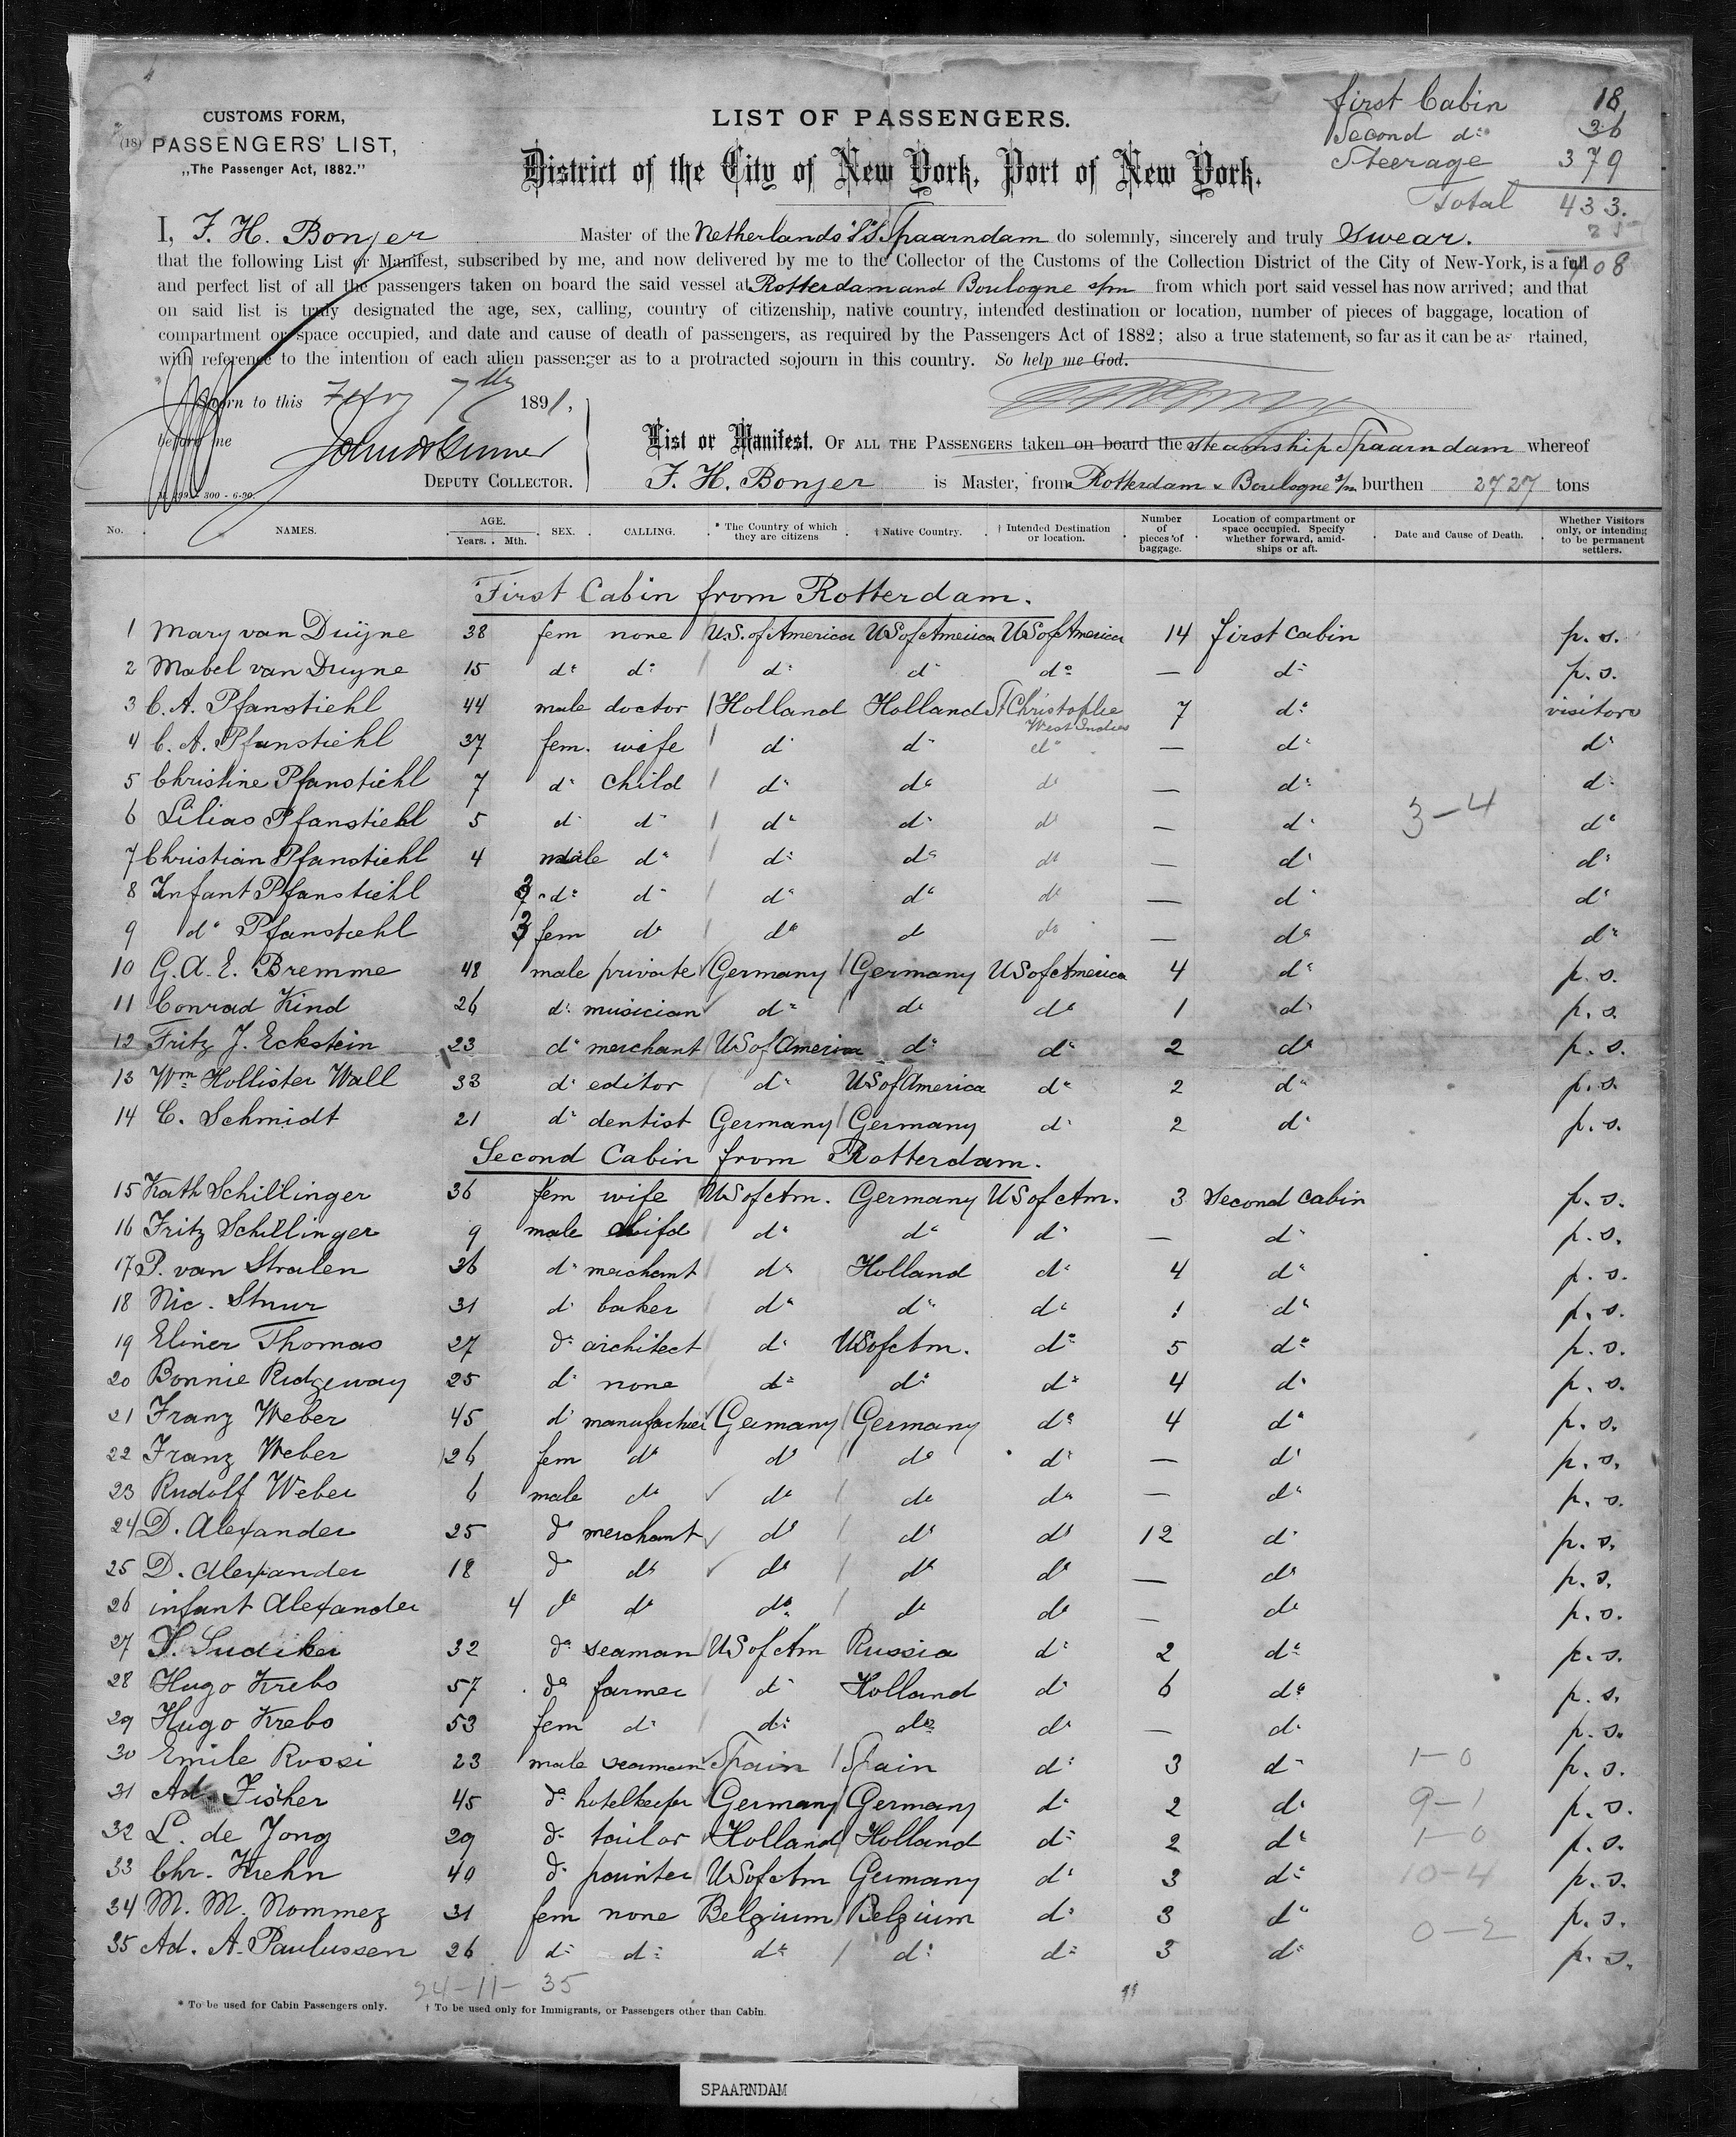 CUSTOMS FORM,
(18) PASSENGERS' LIST,
„The Passenger Act, 1882.”
LIST OF PASSENGERS.
District of the City of New York, Port of New York.
First Cabin 18
Second do 36
Steerage 379
Total 433.
408
I, F. H. Bonjer Master of the Netherlands SS Spaarndam do solemnly, sincerely and truly swear.
that the following List or Manifest, subscribed by me, and now delivered by me to the Collector of the Customs of the Collection District of the City of New-York, is a full
and perfect list of all the passengers taken on board the said vessel at Rotterdam and Boulogne s/m from which port said vessel has now arrived; and that
on said list is truly designated the age, sex, calling, country of citizenship, native country, intended destination or location, number of pieces of baggage, location of
compartment or space occupied, and date and cause of death of passengers, as required by the Passengers Act of 1882; also a true statement, so far as it can be as rtained,
with reference to the intention of each alien passenger as to a protracted sojourn in this country. So help me God.
Sworn to this Feby 7th 1891,
before me
DEPUTY COLLECTOR.
300 - 6-90.
List or Manifest. OF ALL THE PASSENGERS taken on board the steamship Spaarndam whereof
F. H. Bonjer is Master, from Rotterdam & Boulogne s/m burthen 2727 tons
No. NAMES. AGE. Years. Mth. SEX. CALLING. * The Country of which they are citizens † Native Country. † Intended Destination or location. Number of pieces of baggage. Location of compartment or space occupied. Specify whether forward, amidships or aft. Date and Cause of Death. Whether Visitors only, or intending to be permanent settlers.
First Cabin from Rotterdam.
1 Mary van Duijne 38 fem none U.S. of America US of America US of America 14 first cabin p. s.
2 Mabel van Duyne 15 do do do do do — do p. s.
3 C. A. Pfanstiehl 44 male doctor Holland Holland St Christophe West Indies 7 do visitors
4 C. A. Pfanstiehl 37 fem. wife do do do — do do
5 Christine Pfanstiehl 7 do child do do do — do do
6 Lilias Pfanstiehl 5 do do do do do — do 3-4 do
7 Christian Pfanstiehl 4 male do do do do — do do
8 Infant Pfanstiehl 3 do do do do do — do do
9 do Pfanstiehl 3 fem do do do do — do do
10 G. A. E. Bremme 48 male private Germany Germany US of America 4 do p. s.
11 Conrad Kind 26 do musician do do do 1 do p. s.
12 Fritz J. Eckstein 23 do merchant US of America do do 2 do p. s.
13 Wm Hollister Wall 33 do editor do US of America do 2 do p. s.
14 C. Schmidt 21 do dentist Germany Germany do 2 do p. s.
Second Cabin from Rotterdam.
15 Kath Schillinger 36 fem wife US of Am. Germany US of Am. 3 Second cabin p. s.
16 Fritz Schillinger 9 male child do do do — do p. s.
17 P. van Stralen 26 do merchant do Holland do 4 do p. s.
18 Nic. 31 do baker do do do 1 do p. s.
19 Eliner Thomas 27 do architect do US of Am. do 5 do p. s.
20 Bonnie Ridgeway 25 do none do do do 4 do p. s.
21 Franz Weber 45 do manufacturer Germany Germany do 4 do p. s.
22 Franz Weber 26 fem do do do do — do p. s.
23 Rudolf Weber 6 male do do do do — do p. s.
24 D. Alexander 25 do merchant do do do 12 do p. s.
25 D. Alexander 18 do do do do do — do p. s.
26 infant Alexander 4 do do do do do — do p. s.
27 32 do seaman US of Am Russia do 2 do p. s.
28 Hugo Krebs 57 do farmer do Holland do 6 do p. s.
29 Hugo Krebs 53 fem do do do do — do p. s.
30 Emile Rossi 23 male seaman Spain Spain do 3 do 1-0 p. s.
31 Ad. Fisher 45 do hotelkeeper Germany Germany do 2 do 9-1 p. s.
32 L. de Jong 29 do tailor Holland Holland do 2 do 1-0 p. s.
33 Chr. Krehn 40 do painter US of Am Germany do 3 do 10-4 p. s.
34 M. M. Nommez 31 fem none Belgium Belgium do 3 do p. s.
0-2
35 Ad. A. Paulussen 26 do do do do do 3 do p. s.
24-11- 35
* To be used for Cabin Passengers only. † To be used only for Immigrants, or Passengers other than Cabin.
SPAARNDAM